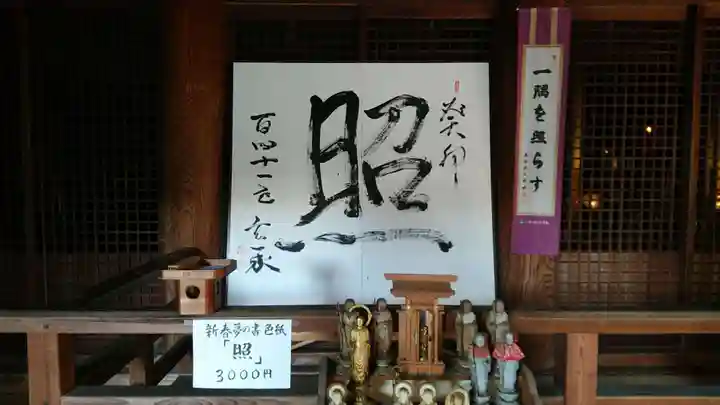 癸卯
照
百四十一世
一隅を照らす
新春夢の書色紙
「照」
3000円